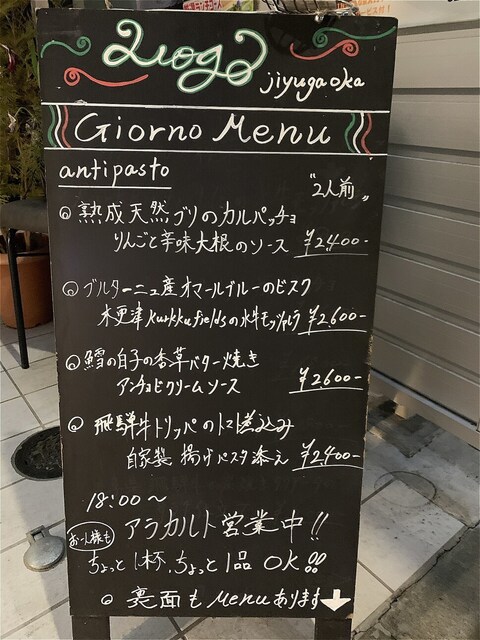 luogo
jiyugaoka
Giorno Menu
antipasto
"2人前"
熟成天然ブリのカルパッチョ
りんごと辛味大根のソース ¥2,400-
ブルターニュ産オマールブルーのビスク
木更津Kurkkufieldsの水牛モッツァレラ ¥2,600-
鱈の白子の香草バター焼き
アンチョビクリームソース ¥2600-
飛騨牛トリッパのトマト煮込み
自家製 揚げパスタ添え ¥2,400-
18:00〜
お一人様も アラカルト営業中!!
ちょっと1杯、ちょっと1品 OK!!
裏面もMenuあります↓